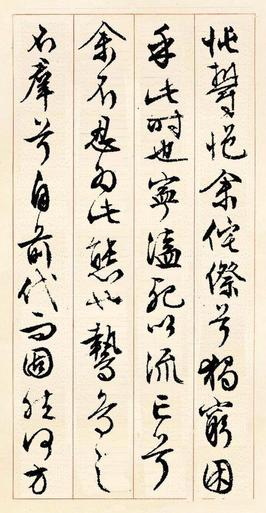 忳鬱悒余侘傺兮獨窮困
乎此時也寧溘死以流亡兮
余不忍為此態也鷙鳥之
不羣兮自前代而固然何方